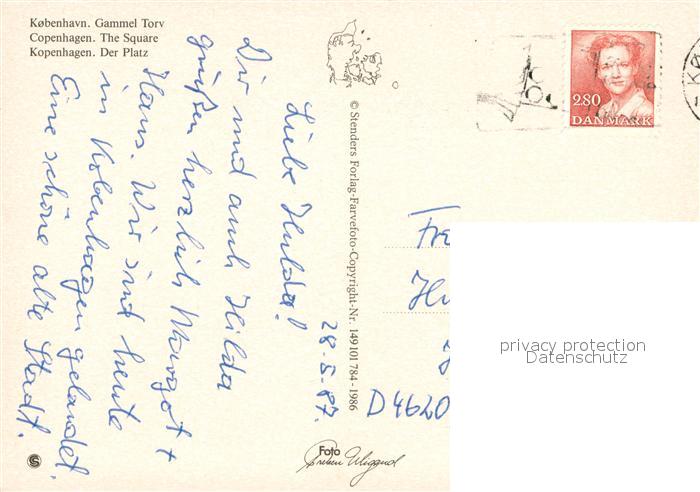 København. Gammel Torv
Copenhagen. The Square
Kopenhagen. Der Platz
28-5-87.
Liebe Hulda!
Dir und auch Hilda
grüßen herzlich Margot +
Hans. Wir sind heute
in Kobenhagen gelandet.
Eine schöne alte Stadt.
© Stenders Forlag-Farvefoto-Copyright-Nr. 149101784-1986
Foto
2.80
DANMARK
KØ
Fr
D4620
privacy protection
Datenschutz